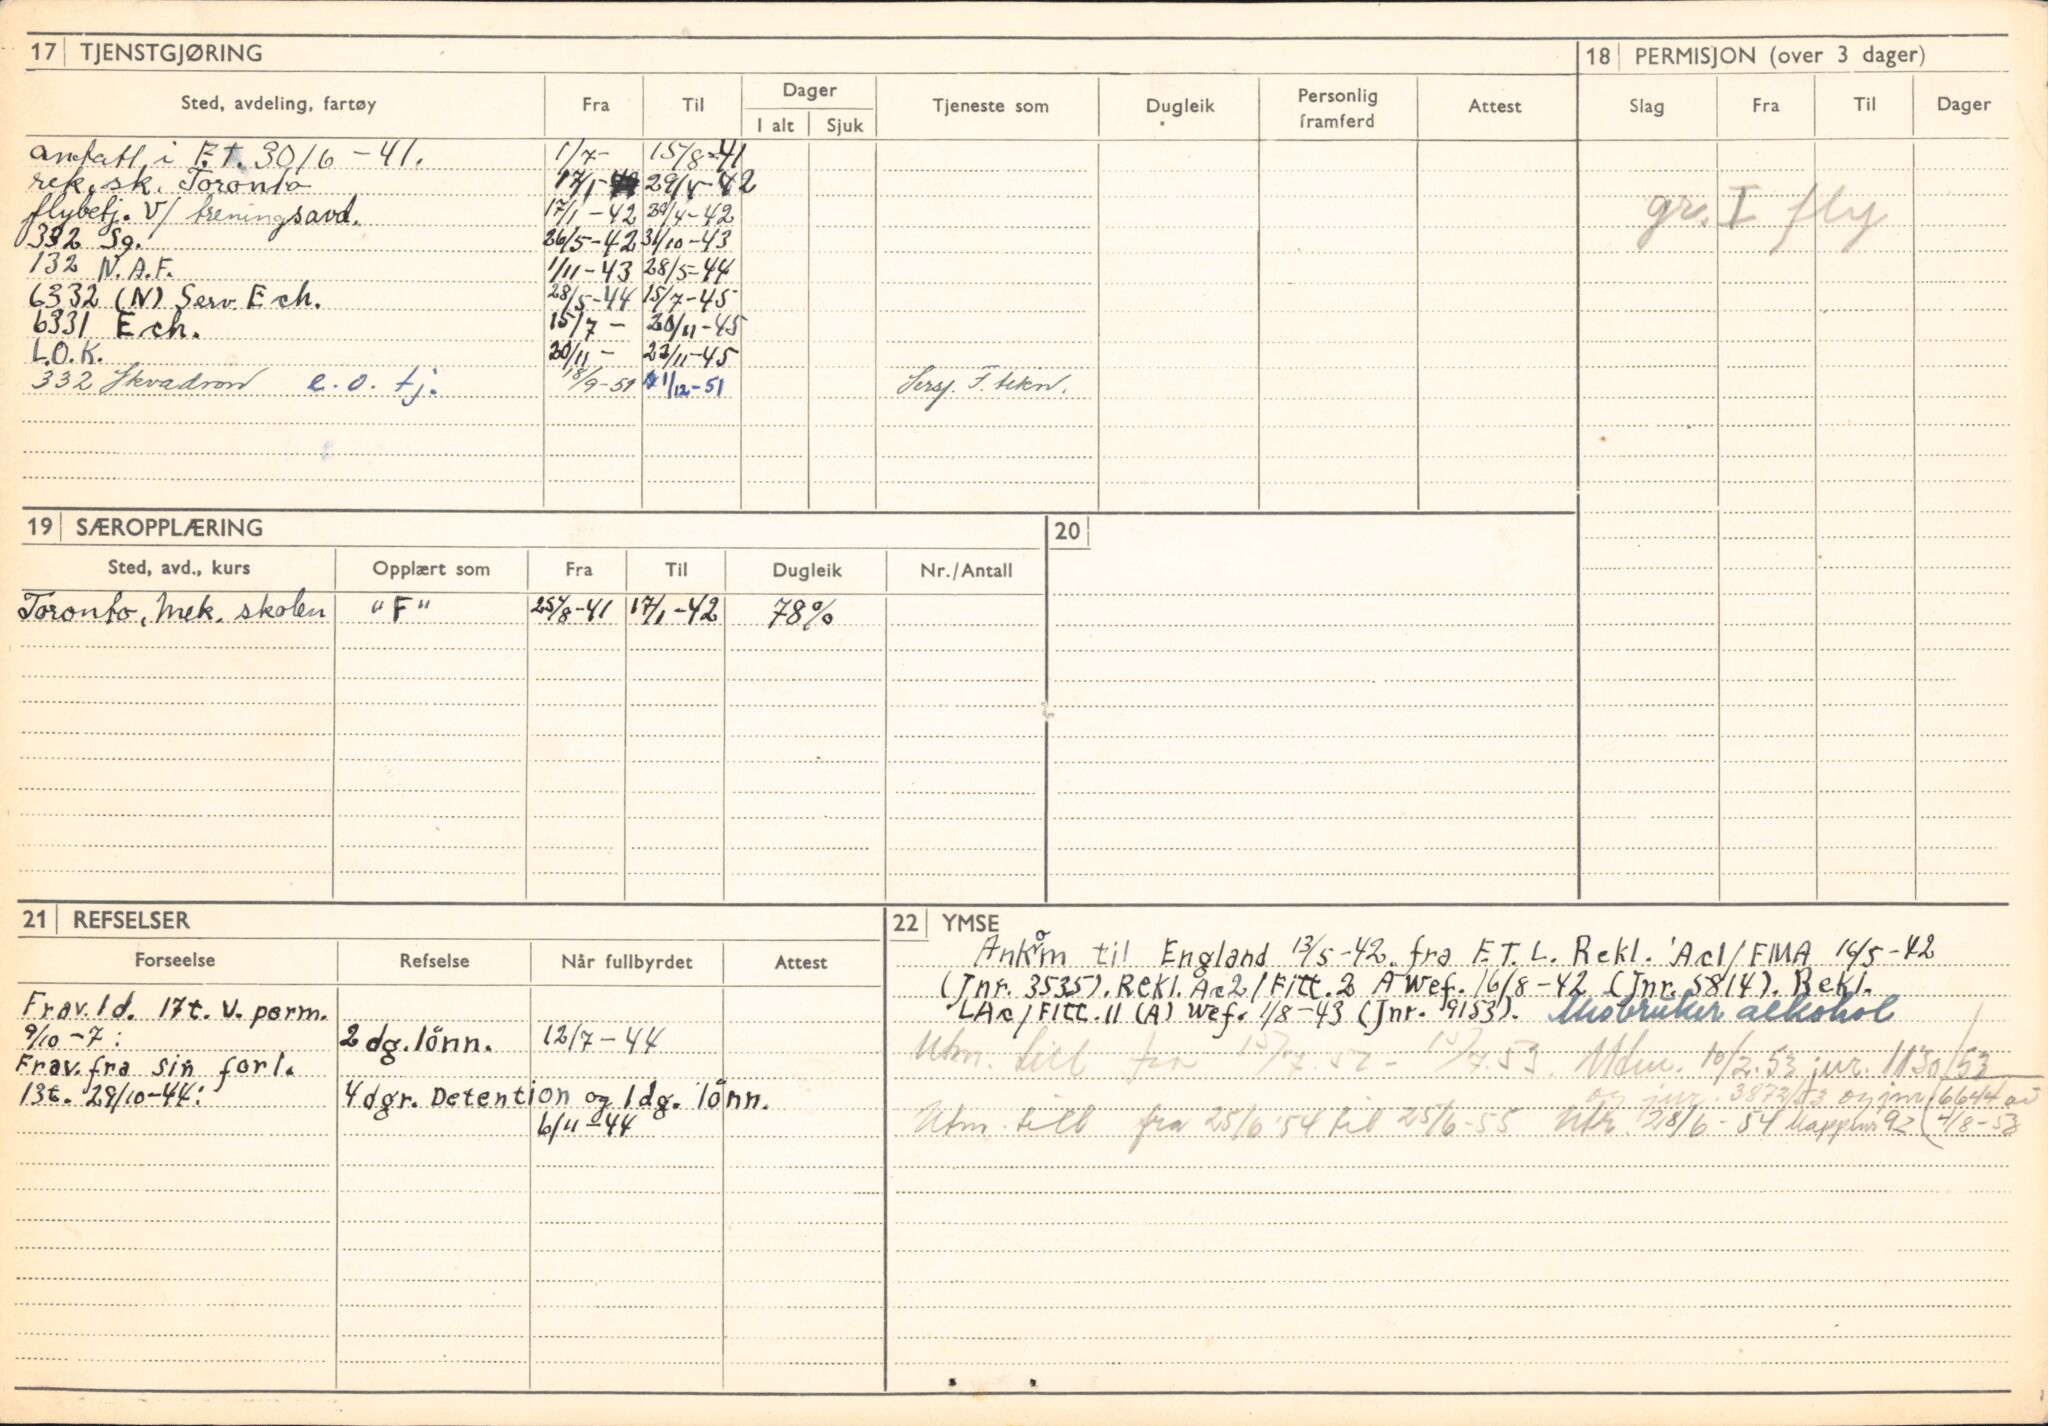 17 TJENSTGJØRING
18 PERMISJON (over 3 dager)
Sted, avdeling, fartøy Fra Til Dager I alt Sjuk Tjeneste som Dugleik Personlig framferd Attest
Slag Fra Til Dager
antatt i F.t. 30/6 -41. 1/7- 15/8-41
rek. sk. Toronto 17/1- 29/4-42
flybetj. v/ treningsavd. 17/1-42 29/4-42
gr. I fly
332 Sq. 26/5-42 31/10-43
132 N.A.F. 1/11-43 28/5-44
6332 (N) Serv. Ech. 28/5-44 15/7-45
6331 Ech. 15/7- 20/11-45
L.O.K. 20/11- 22/11-45
332 Skvadron e.o. tj. 18/9-51 1/12-51 Sersj. F. tekn.
19 SÆROPPLÆRING
20
Sted, avd., kurs Opplært som Fra Til Dugleik Nr./Antall
Toronto, Mek. skolen "F" 25/8-41 17/1-42 78%
21 REFSELSER
Forseelse Refselse Når fullbyrdet Attest
Frav. 1d. 17t. v. perm.
9/10-7: 2 dg. lönn. 12/7-44
Frav. fra sin forl.
13t. 29/10-44: 4 dgr. Detention og 1 dg. lönn.
6/11-44
22 YMSE
Ankom til England 13/5-42 fra F.T.L. Rekl. Ac1/FMA 16/5-42
(Jnr. 3535). Rekl. Ac2/Fitt. 2 A Wef. 16/8-42 (Jnr. 5814). Rekl.
LAc/Fitt. II (A) Wef. 1/8-43 (Jnr. 9153). Misbruker alkohol
Utm. till fra 15/7.52- 15/7.53. Utm. 10/2.53 jnr. 1130/53
og jnr. 3872/53 og jnr 6644 av
Utm. till fra 25/6-54 til 25/6-55 Utk. 28/6-54 4/8-53